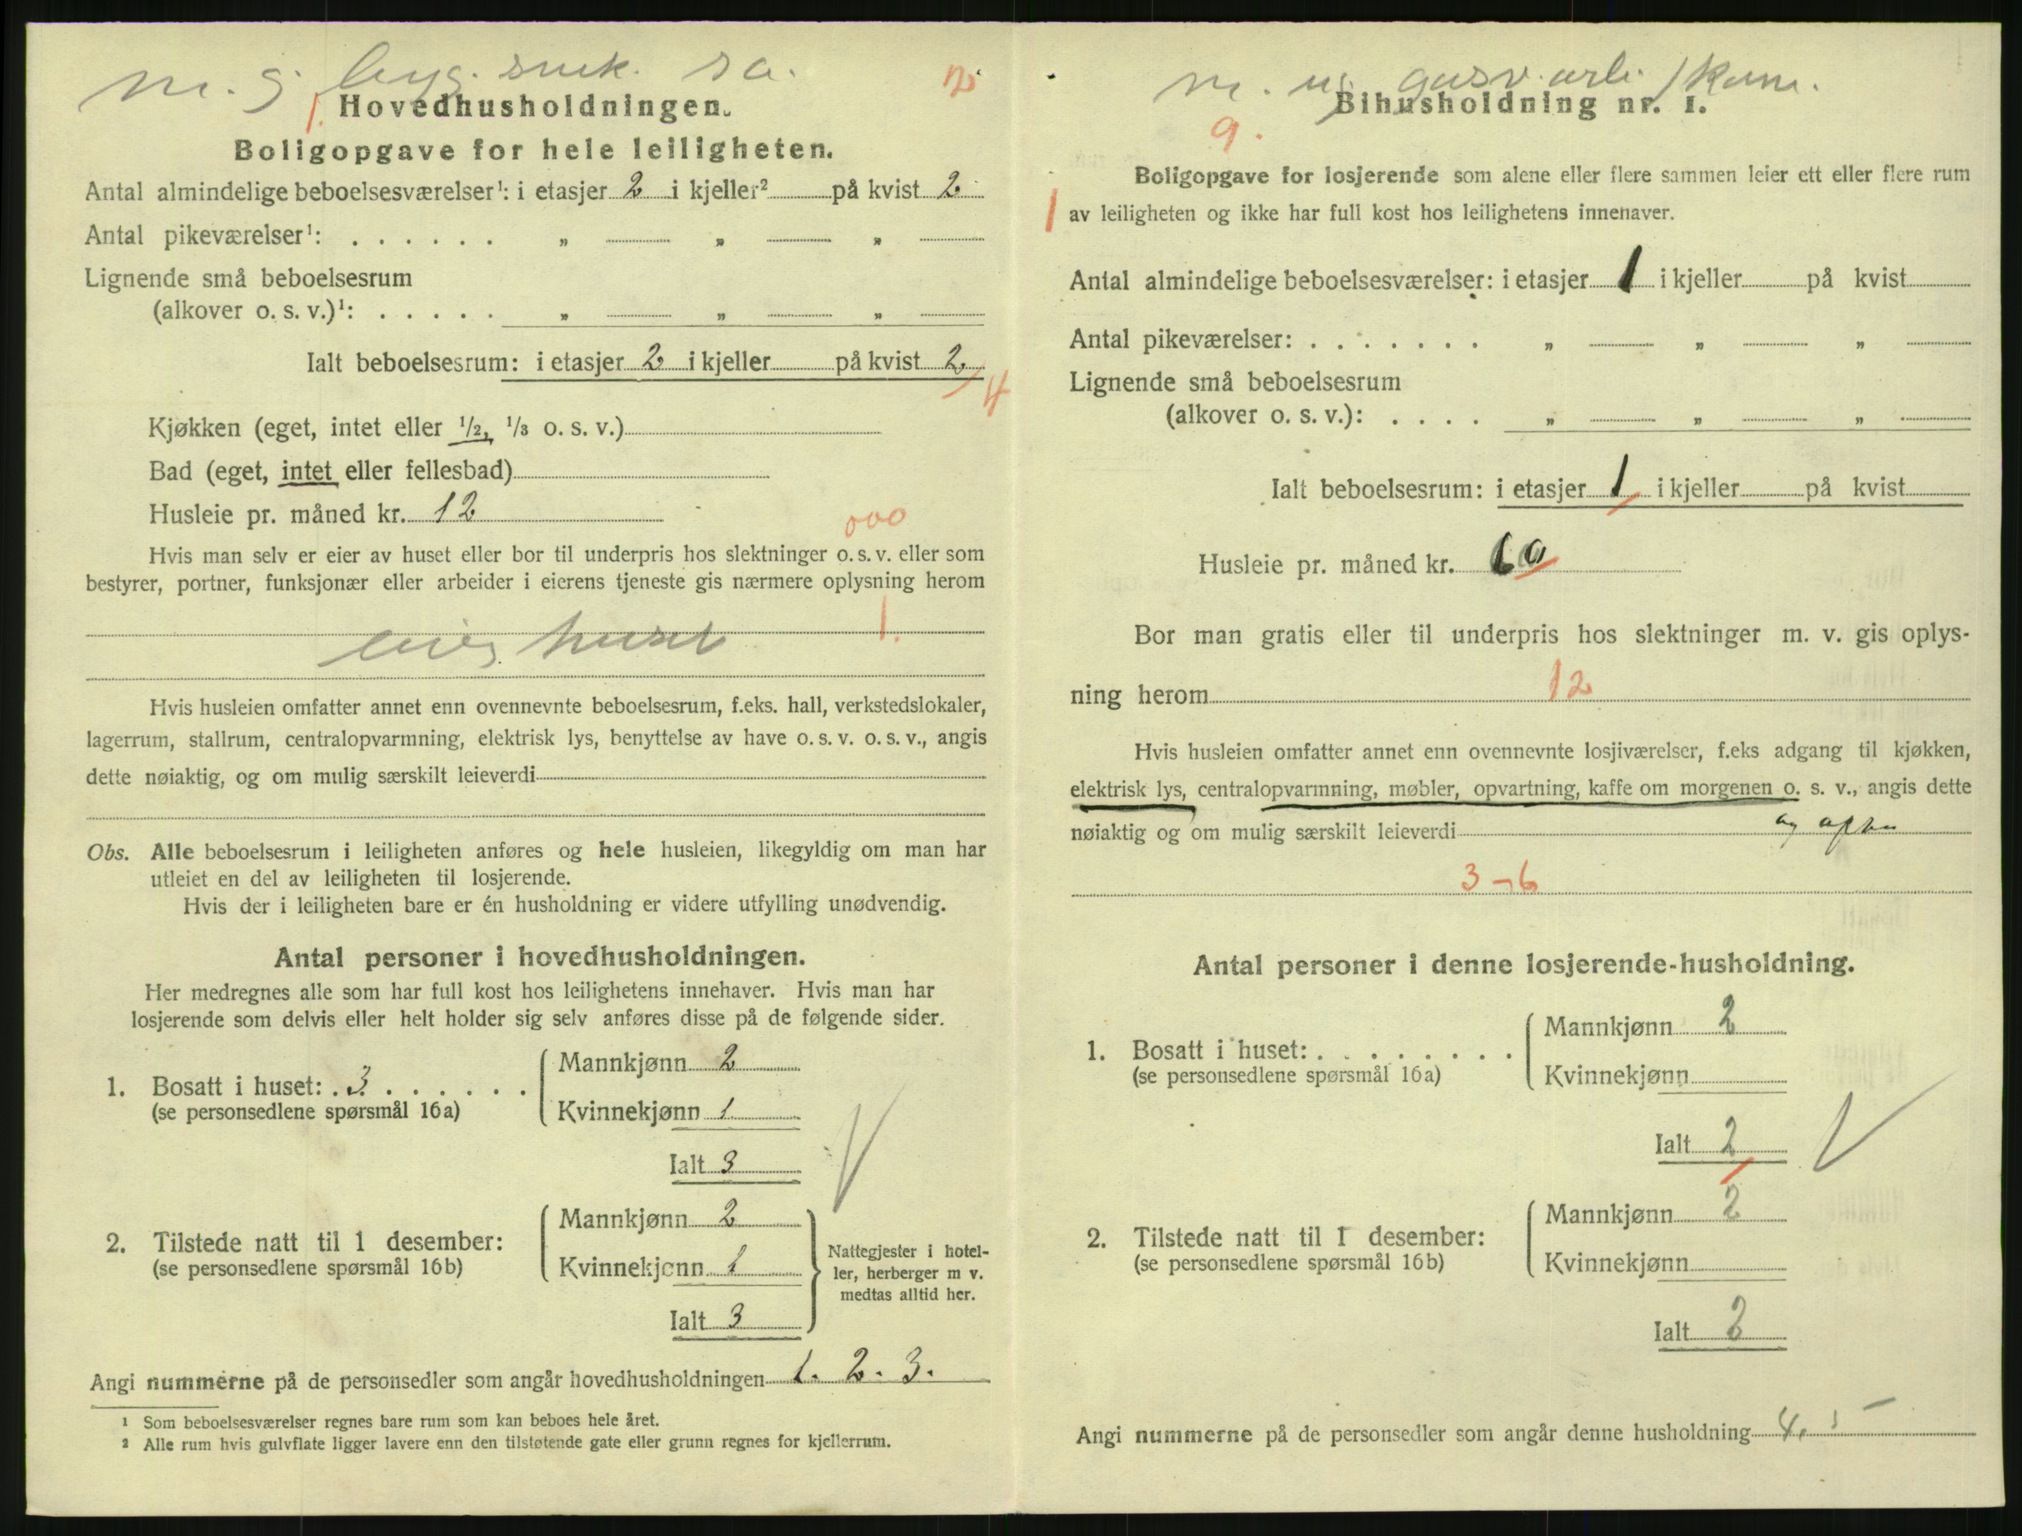 m. g. byg. snek. sa.
1.
Hovedhusholdningen.
Boligopgave for hele leiligheten.
Antal almindelige beboelsesværelser¹: i etasjer 2 i kjeller² på kvist 2
Antal pikeværelser¹: . . . . . . „ „ „
Lignende små beboelsesrum
(alkover o. s. v.)¹: . . . . . „ „ „
Ialt beboelsesrum: i etasjer 2 i kjeller på kvist 2
4
Kjøkken (eget, intet eller ½, ⅓ o. s. v.)
Bad (eget, intet eller fellesbad)
Husleie pr. måned kr. 12
000
Hvis man selv er eier av huset eller bor til underpris hos slektninger o. s. v. eller som
bestyrer, portner, funksjonær eller arbeider i eierens tjeneste gis nærmere oplysning herom
1.
eier huset
Hvis husleien omfatter annet enn ovennevnte beboelsesrum, f.eks. hall, verkstedslokaler,
lagerrum, stallrum, centralopvarmning, elektrisk lys, benyttelse av have o. s. v. o. s. v., angis
dette nøiaktig, og om mulig særskilt leieverdi
Obs. Alle beboelsesrum i leiligheten anføres og hele husleien, likegyldig om man har
utleiet en del av leiligheten til losjerende.
Hvis der i leiligheten bare er én husholdning er videre utfylling unødvendig.
Antal personer i hovedhusholdningen.
Her medregnes alle som har full kost hos leilighetens innehaver. Hvis man har
losjerende som delvis eller helt holder sig selv anføres disse på de følgende sider.
Mannkjønn 2
1. Bosatt i huset: . 3. . . . . . .
(se personsedlene spørsmål 16a)
Kvinnekjønn 1
Ialt 3
Mannkjønn 2
2. Tilstede natt til 1 desember:
(se personsedlene spørsmål 16b)
Kvinnekjønn 1
Ialt 3
Nattegjester i hotel-
ler, herberger m v.
medtas alltid her.
Angi nummerne på de personsedler som angår hovedhusholdningen 1. 2. 3.
¹ Som beboelsesværelser regnes bare rum som kan beboes hele året.
² Alle rum hvis gulvflate ligger lavere enn den tilstøtende gate eller grunn regnes for kjellerrum.
m. ug. gasv. arb. / kom.
Bihusholdning nr. 1.
9.
Boligopgave for losjerende som alene eller flere sammen leier ett eller flere rum
1 av leiligheten og ikke har full kost hos leilighetens innehaver.
Antal almindelige beboelsesværelser: i etasjer 1 i kjeller på kvist
Antal pikeværelser: . . . . . . . „ „ „
Lignende små beboelsesrum
(alkover o. s. v.): . . . . „ „ „
Ialt beboelsesrum: i etasjer 1 i kjeller på kvist
Husleie pr. måned kr. 60
Bor man gratis eller til underpris hos slektninger m. v. gis oplys-
ning herom 12
Hvis husleien omfatter annet enn ovennevnte losjiværelser, f.eks adgang til kjøkken,
elektrisk lys, centralopvarmning, møbler, opvartning, kaffe om morgenen o. s. v., angis dette
nøiaktig og om mulig særskilt leieverdi og
3-6
Antal personer i denne losjerende-husholdning.
Mannkjønn 2
1. Bosatt i huset: . . . . . . . .
(se personsedlene spørsmål 16a)
Kvinnekjønn
Ialt 2
Mannkjønn 2
2. Tilstede natt til 1 desember:
(se personsedlene spørsmål 16b)
Kvinnekjønn
Ialt 2
Angi nummerne på de personsedler som angår denne husholdning 4, 5